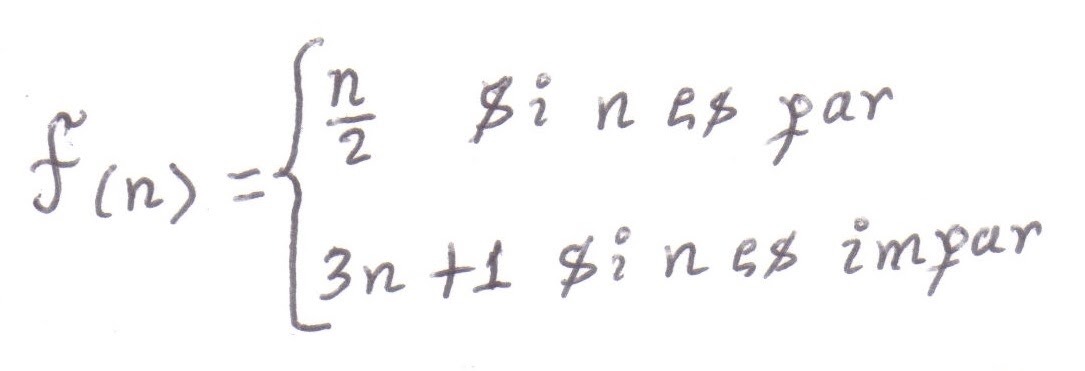 f(n) = { n/2 si n es par
3n + 1 si n es impar